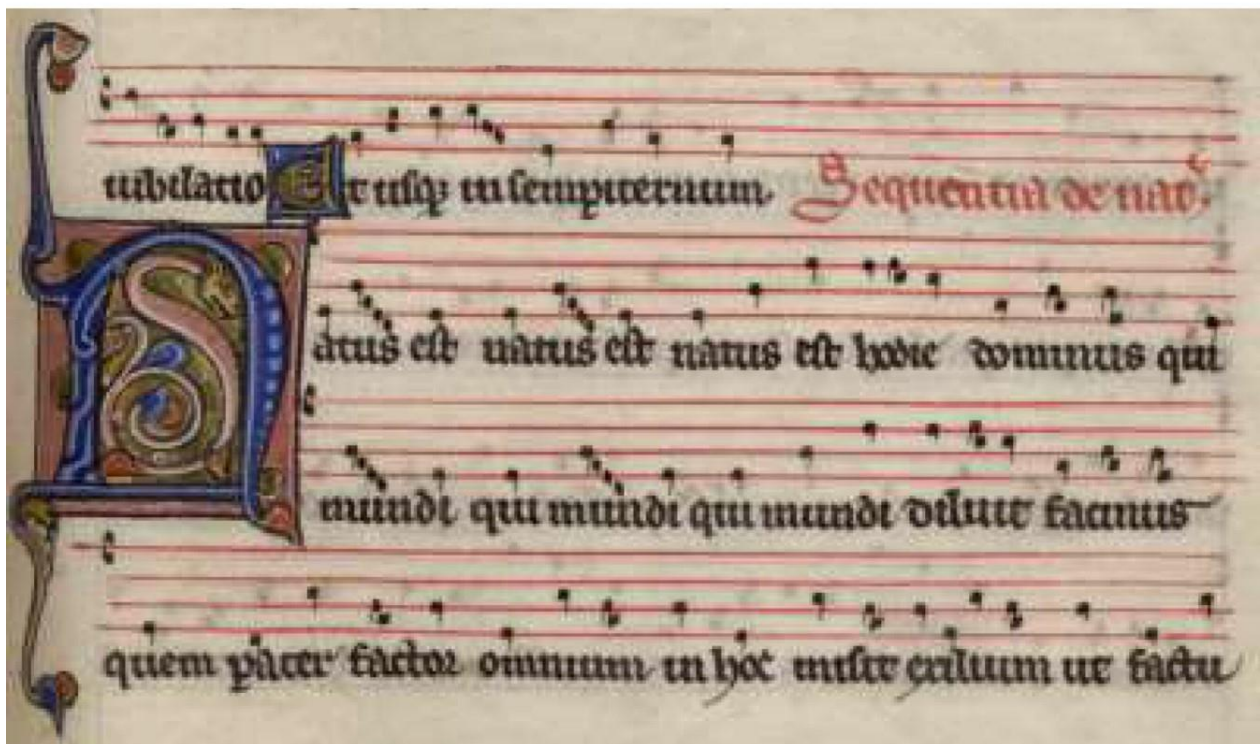 iubilatio Et usq; in sempiternum. Sequentia de nat
Natus est natus est natus est hodie dominus qui
mundi qui mundi qui mundi diluit facinus
quem pater factor omnium in hoc misit exilium ut factu